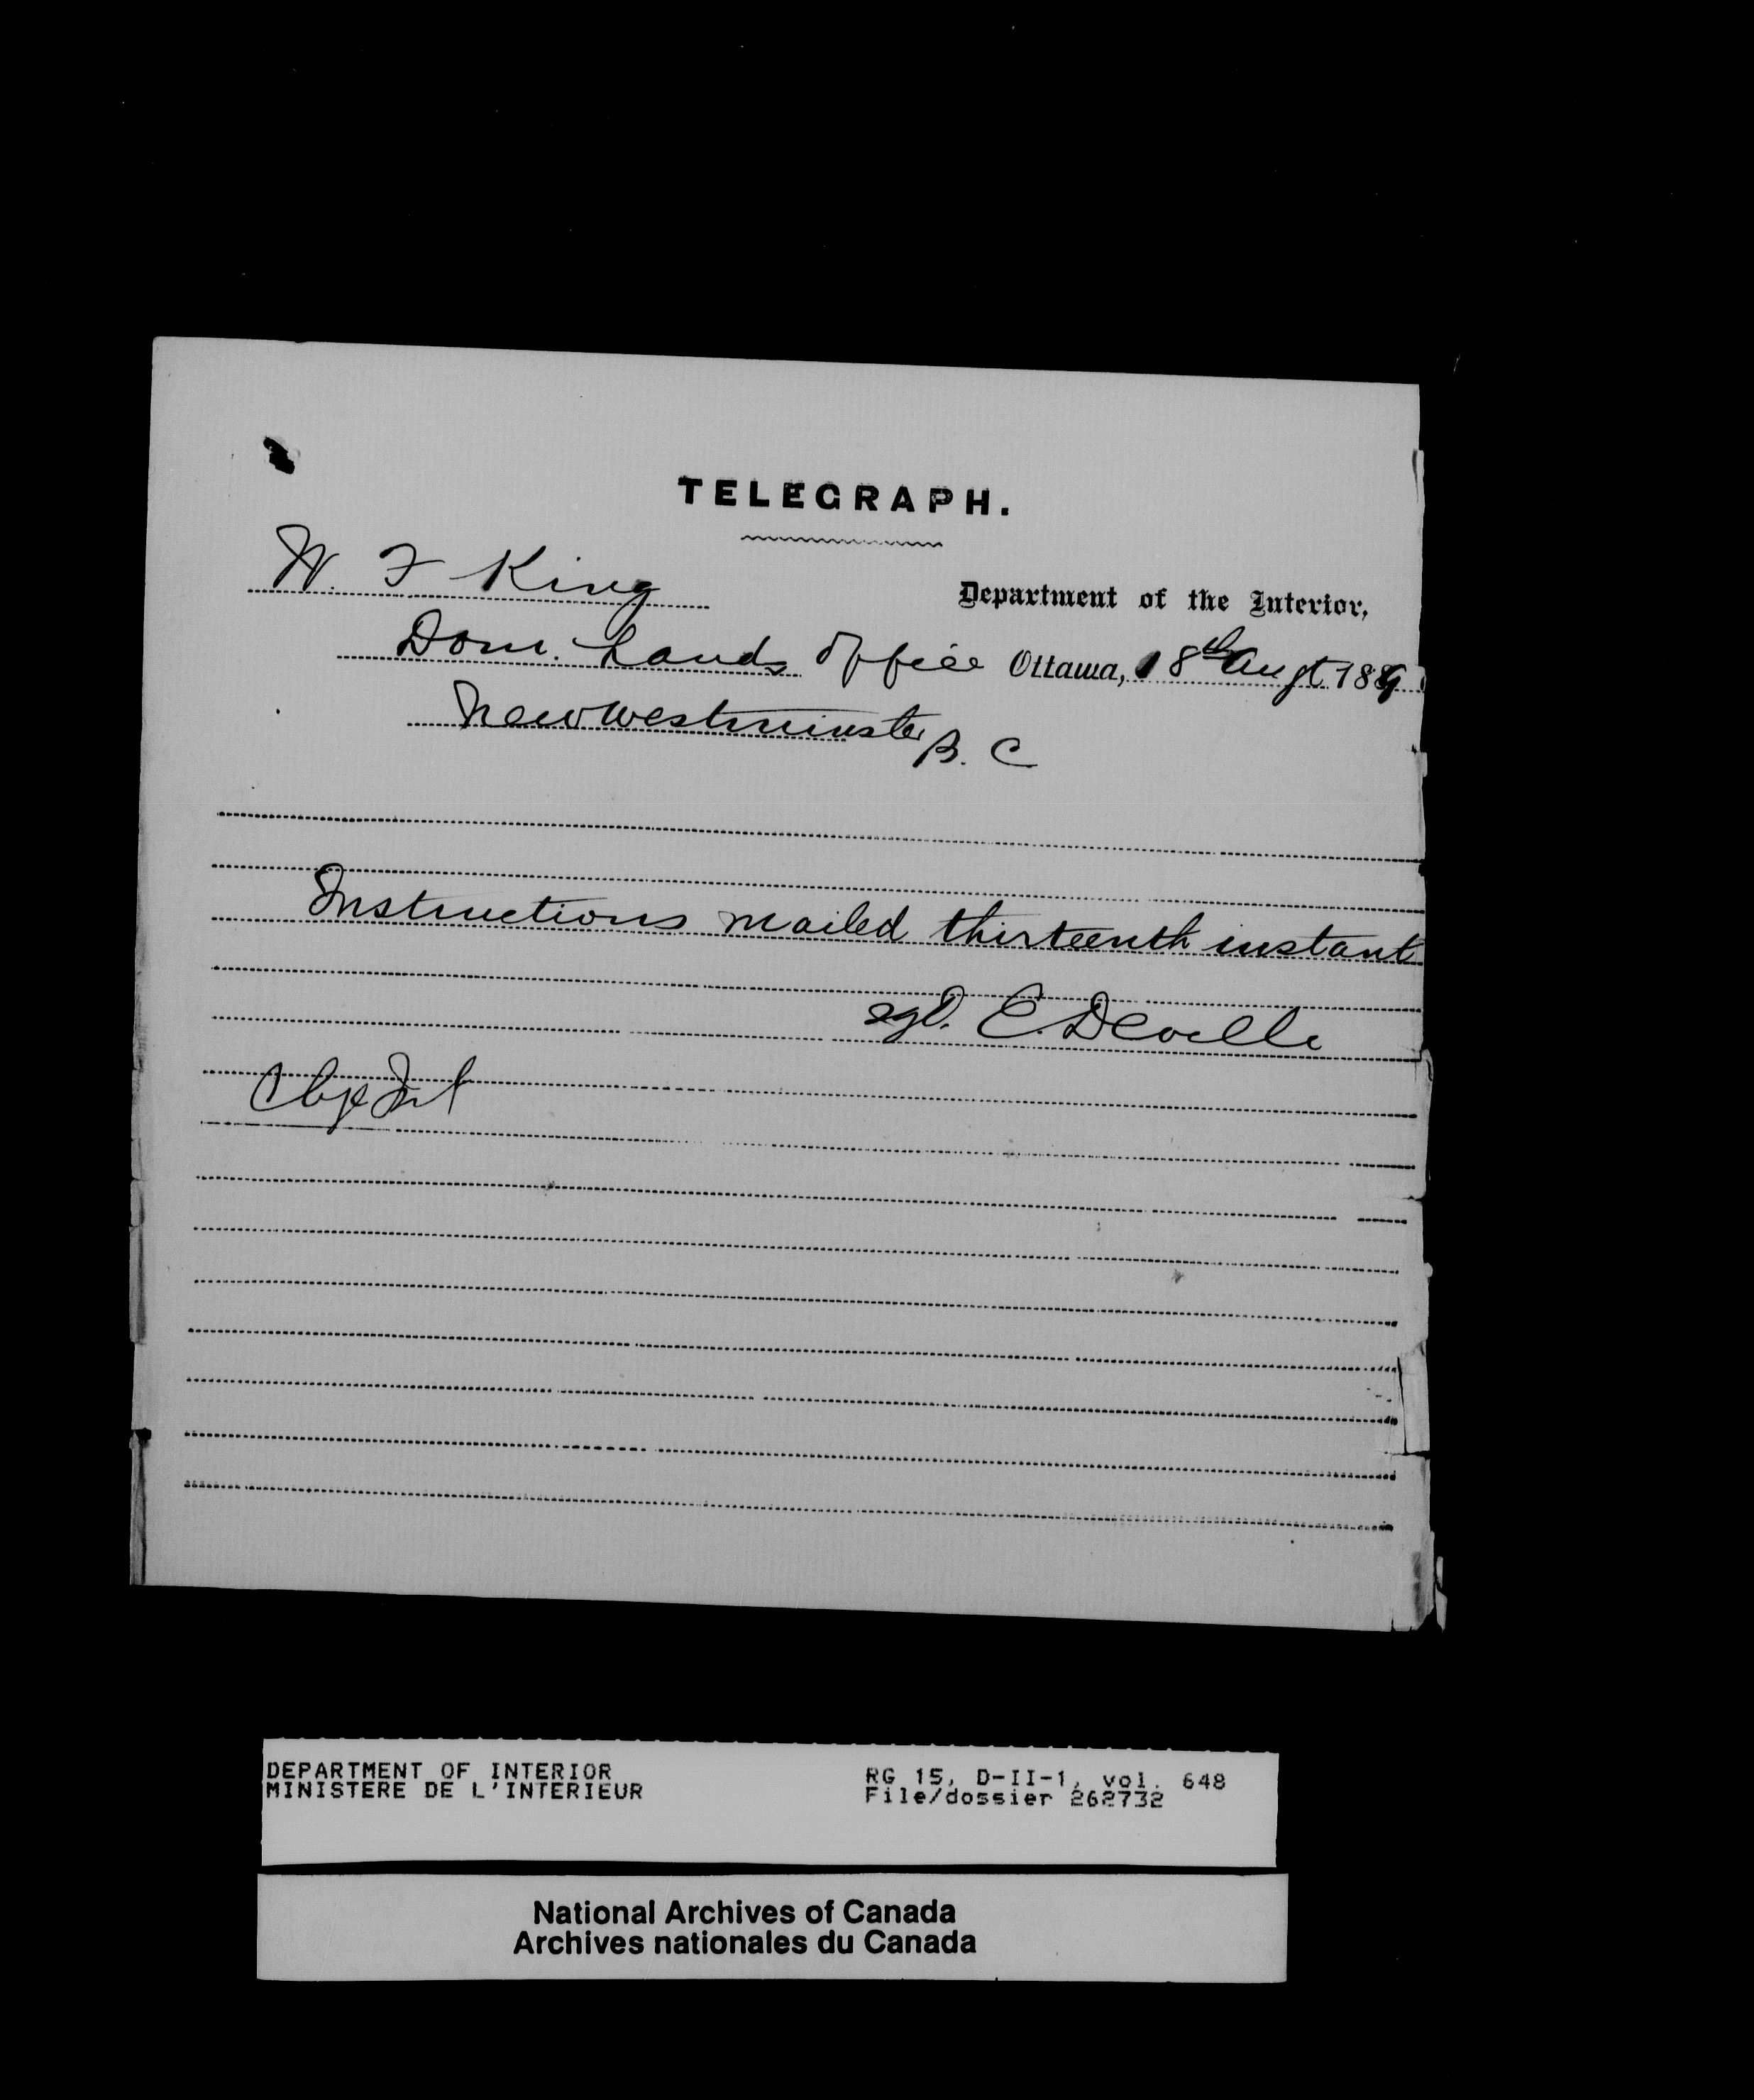 TELEGRAPH.
W. F King
Department of the Interior,
Dom. Lands Office Ottawa, 18th Augt 1889
New Westminster B. C
Instructions mailed thirteenth instant
sgd. E. Deville
Chge Int
DEPARTMENT OF INTERIOR
MINISTERE DE L'INTERIEUR
RG 15, D-II-1, vol. 648
File/dossier 262732
National Archives of Canada
Archives nationales du Canada